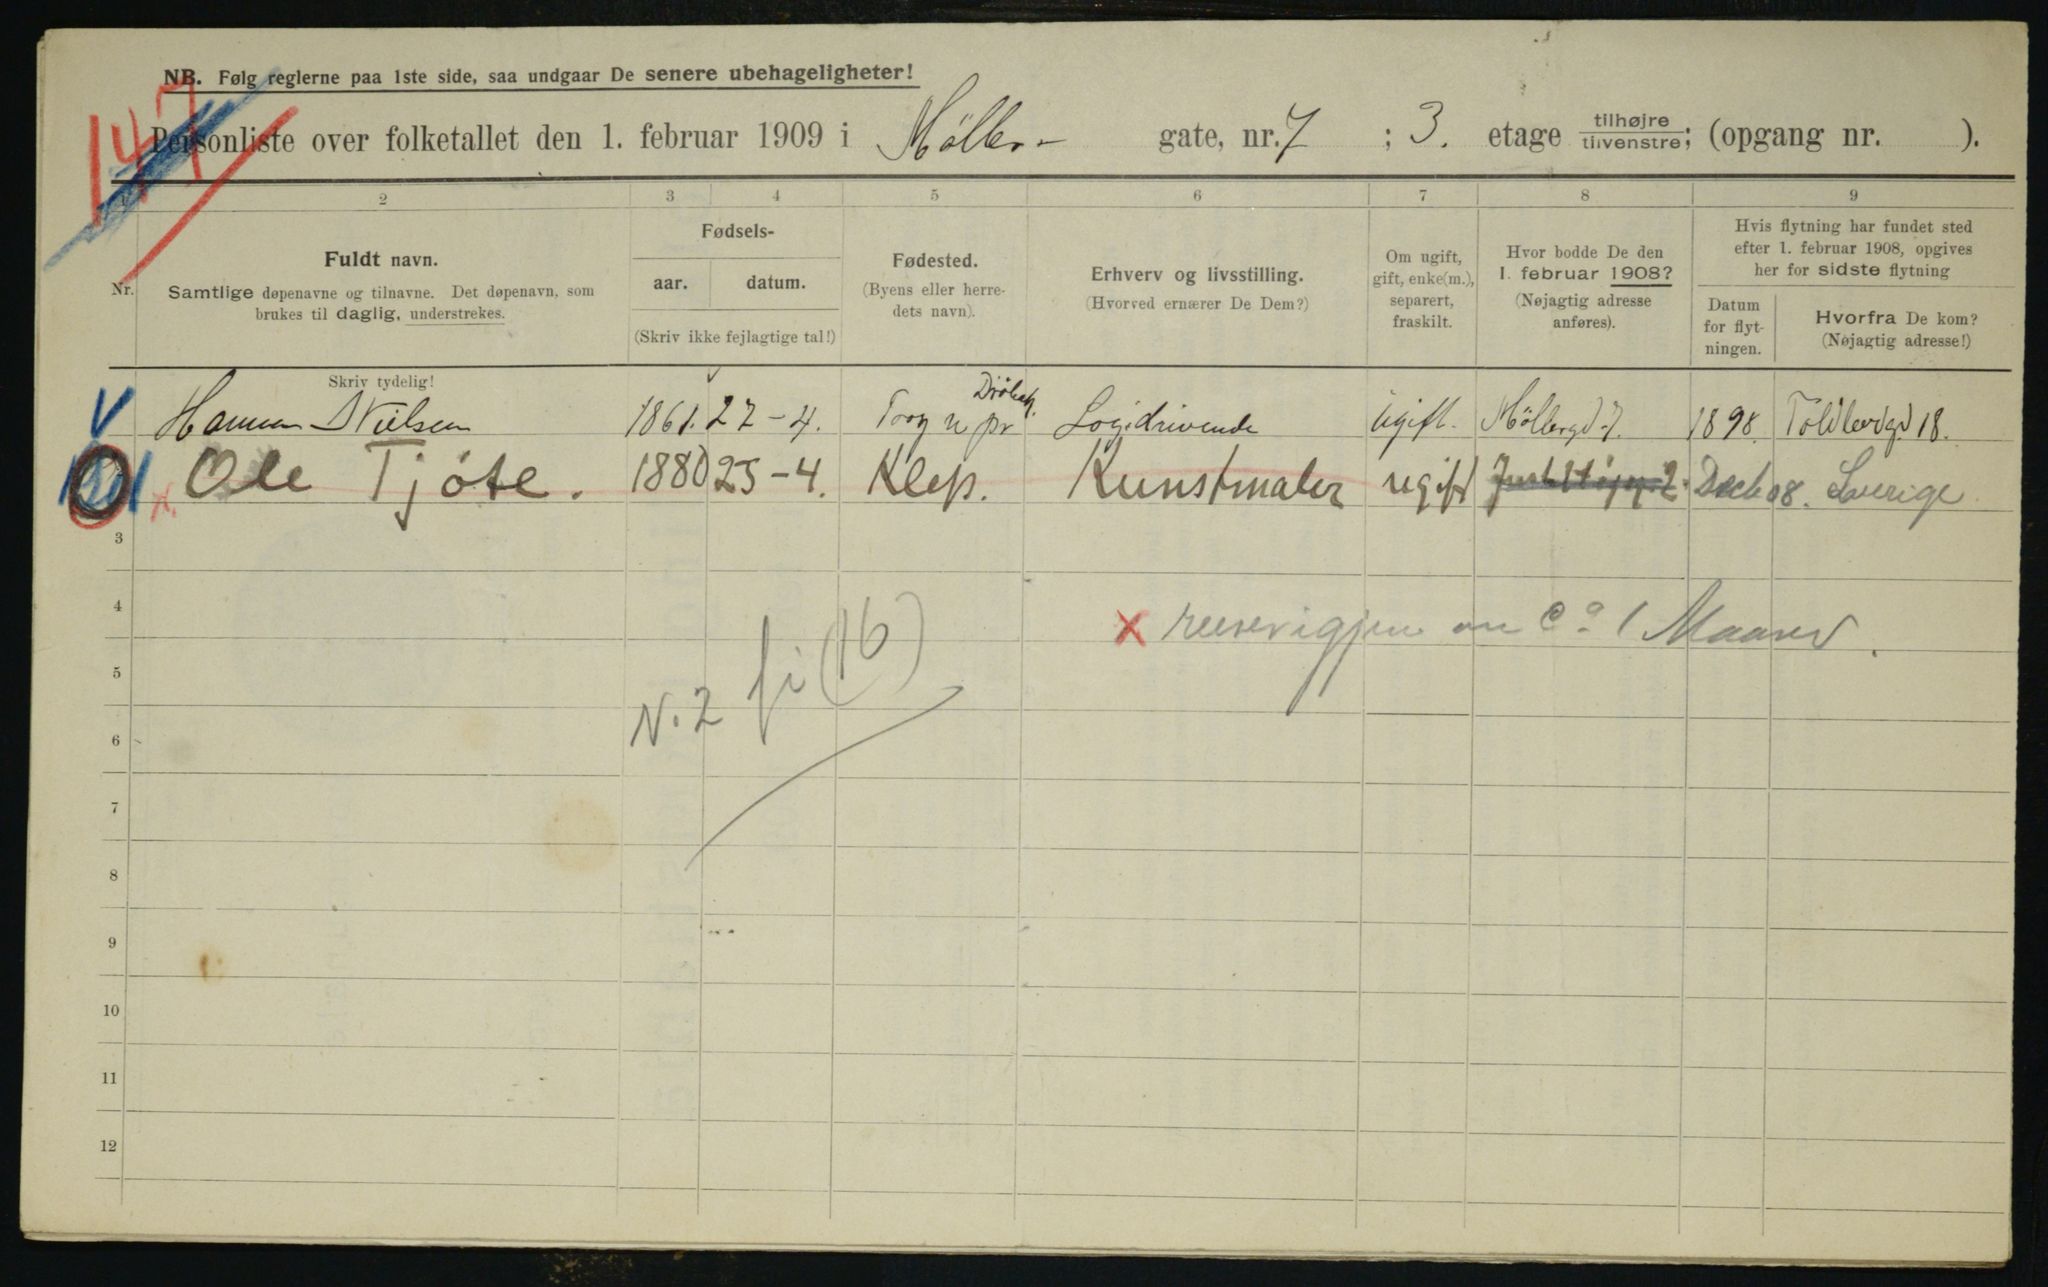 NB. Følg reglerne paa 1ste side, saa undgaar De senere ubehageligheter!
147
Personliste over folketallet den 1. februar 1909 i Möller- gate, nr. 7 ; 3. etage tilhøjre tilvenstre; (opgang nr. ).
1 2 3 4 5 6 7 8 9
Nr.
Fuldt navn.
Samtlige døpenavne og tilnavne. Det døpenavn, som
brukes til daglig, understrekes.
Skriv tydelig!
Fødsels-
aar. datum.
(Skriv ikke fejlagtige tal!)
Fødested.
(Byens eller herre-
dets navn).
Erhverv og livsstilling.
(Hvorved ernærer De Dem?)
Om ugift,
gift, enke(m.),
separert,
fraskilt.
Hvor bodde De den
1. februar 1908?
(Nøjagtig adresse
anføres).
Hvis flytning har fundet sted
efter 1. februar 1908, opgives
her for sidste flytning
Datum
for flyt-
ningen.
Hvorfra De kom?
(Nøjagtig adresse!)
Dröbak.
Nielsen 1861. 27-4. pr Logidrivende ugift. Möllergd. 7. 1898. Toldbodgd. 18.
x. Ole Tjöte. 1880 25-4. Klep. Kunstmaler ugift Decb 08. Sverige
3
4
x om ca 1 Maaned.
N. 2 fi (16)
5
6
7
8
9
10
11
12